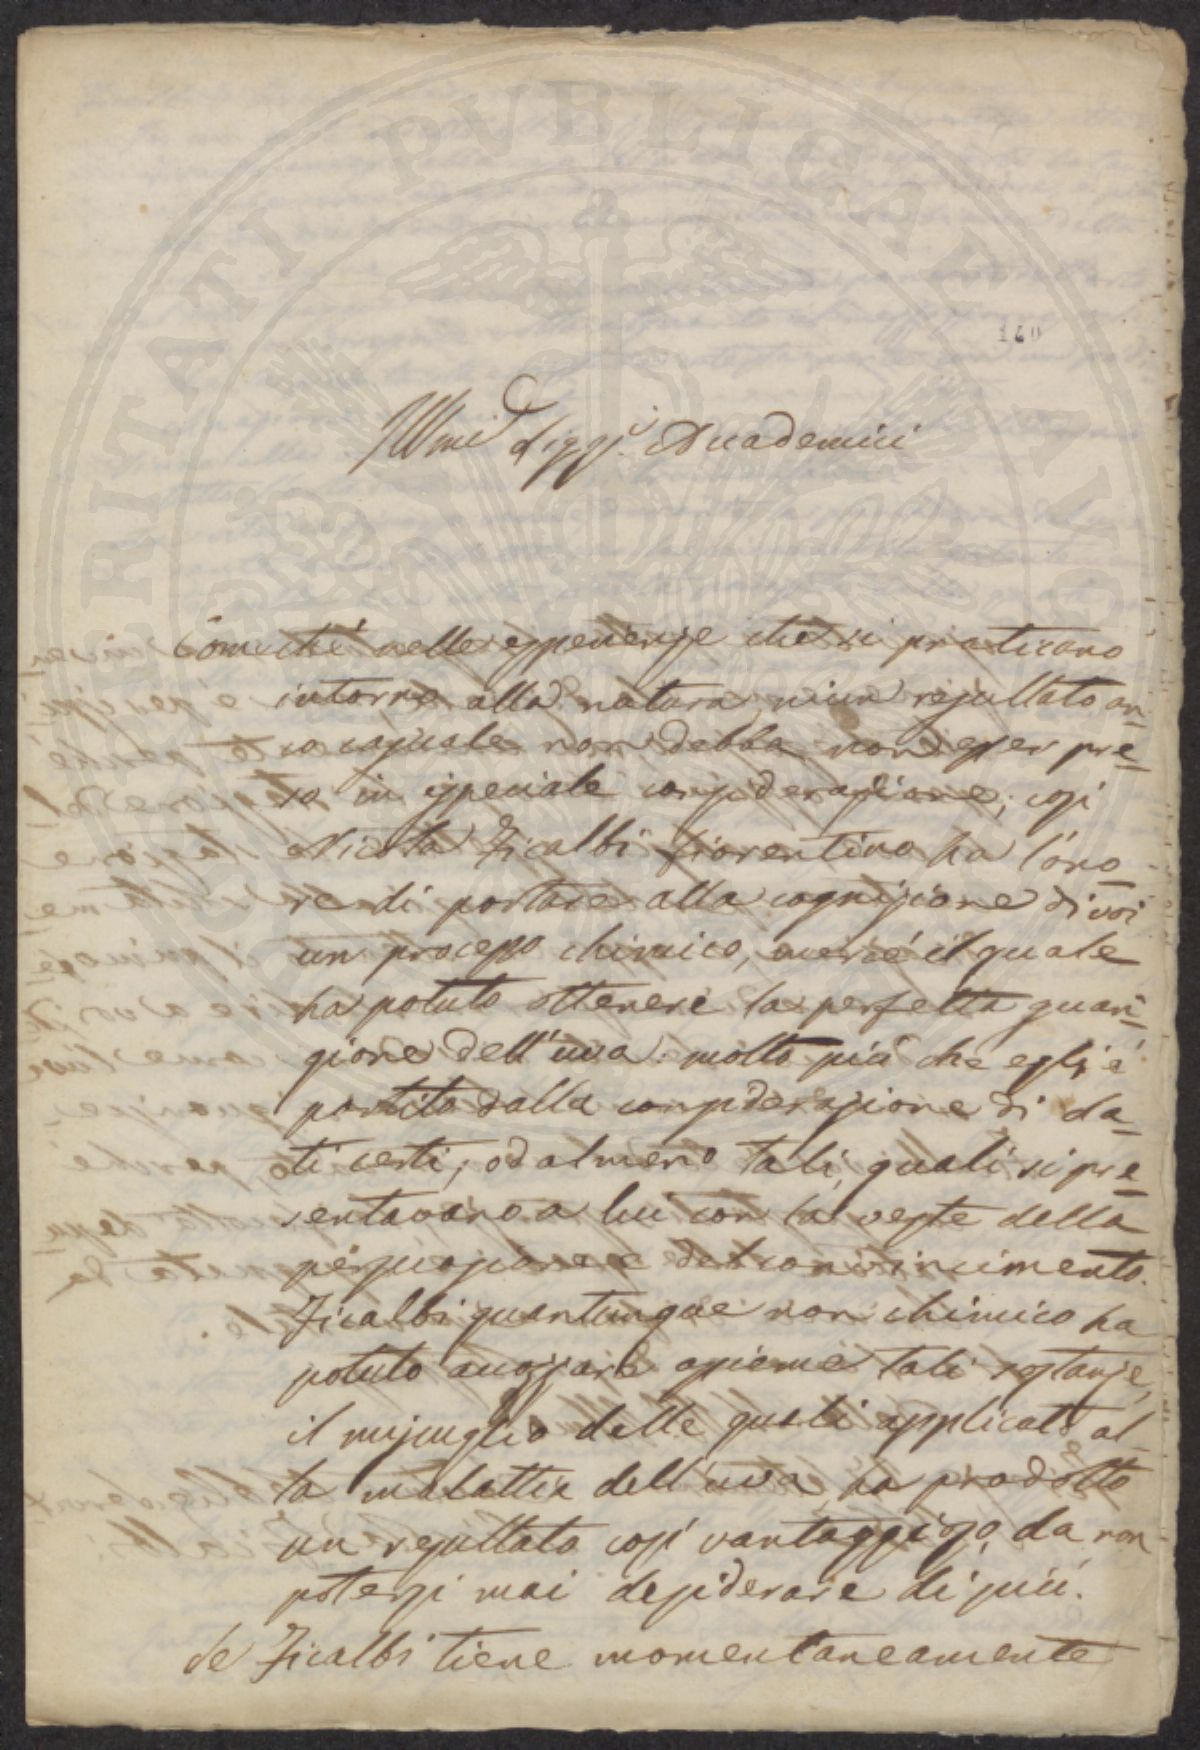 140
Illmi Sigg.i Accademici
Comechè nelle esperienze che si praticano
intorno alla natura niun resultato an-
co casuale non debba non esser pre-
so in ispeciale considerazione; così
Nicola Ficalbi fiorentino ha l'ono-
re di portare alla cognizione di voi
un processo chimico, mercè il quale
ha potuto ottenere la perfetta guari-
gione dell'uva: molto più che egli è
partito dalla considerazione di da-
ti certi, od almeno tali, quali si pre-
sentavano a lui con la veste della
persuasione e del convincimento.
Ficalbi quantunque non chimico ha
potuto accozzare assieme tali sostanze,
il miscuglio delle quali applicato al-
la malattia dell'uva, ha prodotto
un resultato così vantaggioso, da non
potersi mai desiderare di più.
Se Ficalbi tiene momentaneamente